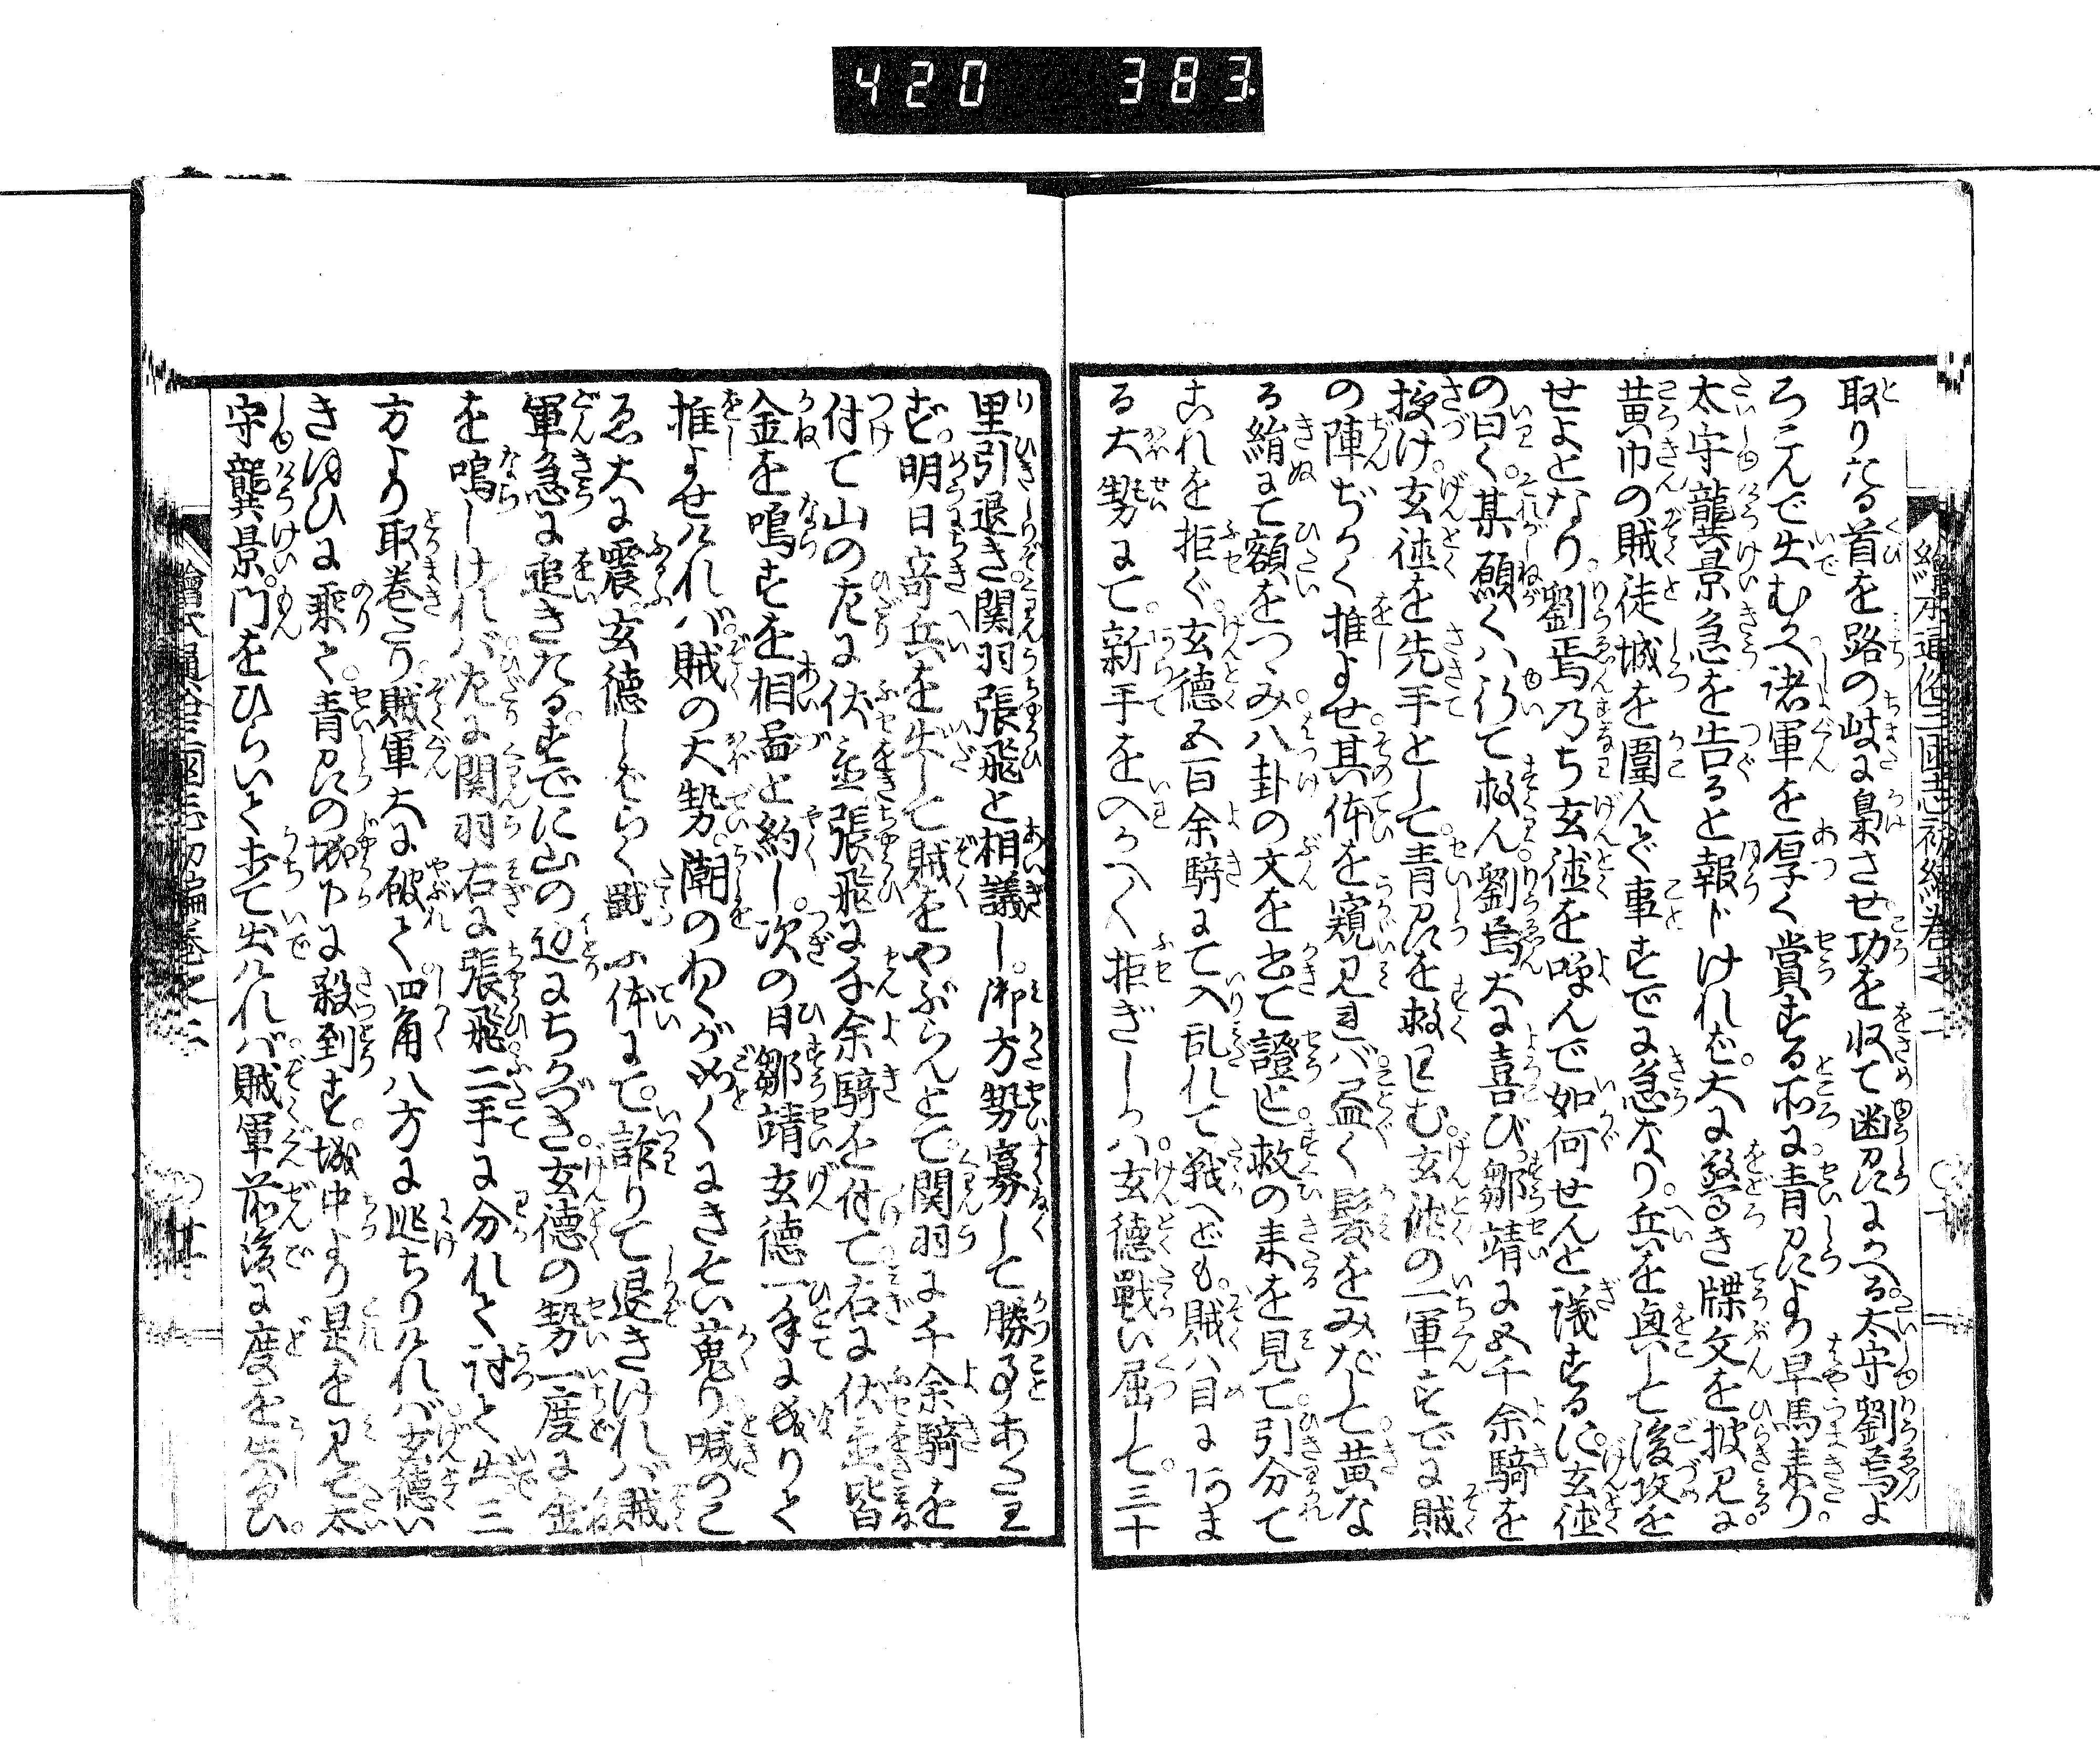 420 383
取りたる首を路の岐に梟させ功を収て幽州にかへる太守劉焉よ
ろこんで出むかへ諸軍を厚く賞する所に青州より早馬来り
太守龔景急を告ると報じければ大に驚き牒文を披見に
黄巾の賊徒城を圍んで事すでに急なり兵を興して後攻を
せよとなり劉焉乃ち玄徳を喚んで如何せんと議するに玄徳
の曰く某願くハ行て救ん劉焉大に喜び鄒靖に五千余騎を
授け玄徳を先手として青州を救はしむ玄徳の一軍すでに賊
の陣ぢかく推よせ其体を窺見れバ盡く髪をみだして黄な
る絹にて額をつゝみ八卦の文を書て證とし救の来を見て引分て
これを拒ぐ玄徳五百余騎にて入乱れて戦へども賊ハ目にあま
る大勢にて新手を入かへ〱拒ぎしかバ玄徳戦い屈して三十
里引退き関羽張飛と相議し御方勢寡して勝事あたは
ず明日奇兵を出して賊をやぶらんとて関羽に千余騎を
付て山の左に伏並張飛に千余騎を付て右に伏並皆
金を鳴すを相圖と約し次の日鄒靖玄徳一手に成りて
推よせけれバ賊の大勢潮のわくが如くにきそい蒐り喊のこ
ゑ大に震玄徳しばらく戦ふ体にて詐りて退きければ賊
軍急に追きたるすでに山の辺にちかづき玄徳の勢一度に金
を鳴しけれバ左に関羽右に張飛二手に分れて討て出三
方より取巻たり賊軍大に破て四角八方に逃ちりけれバ玄徳い
きほひに乗て青州の城下に殺到す城中より是を見て太
守龔景門をひらいてうち出けれバ賊軍前後に度を失ひ